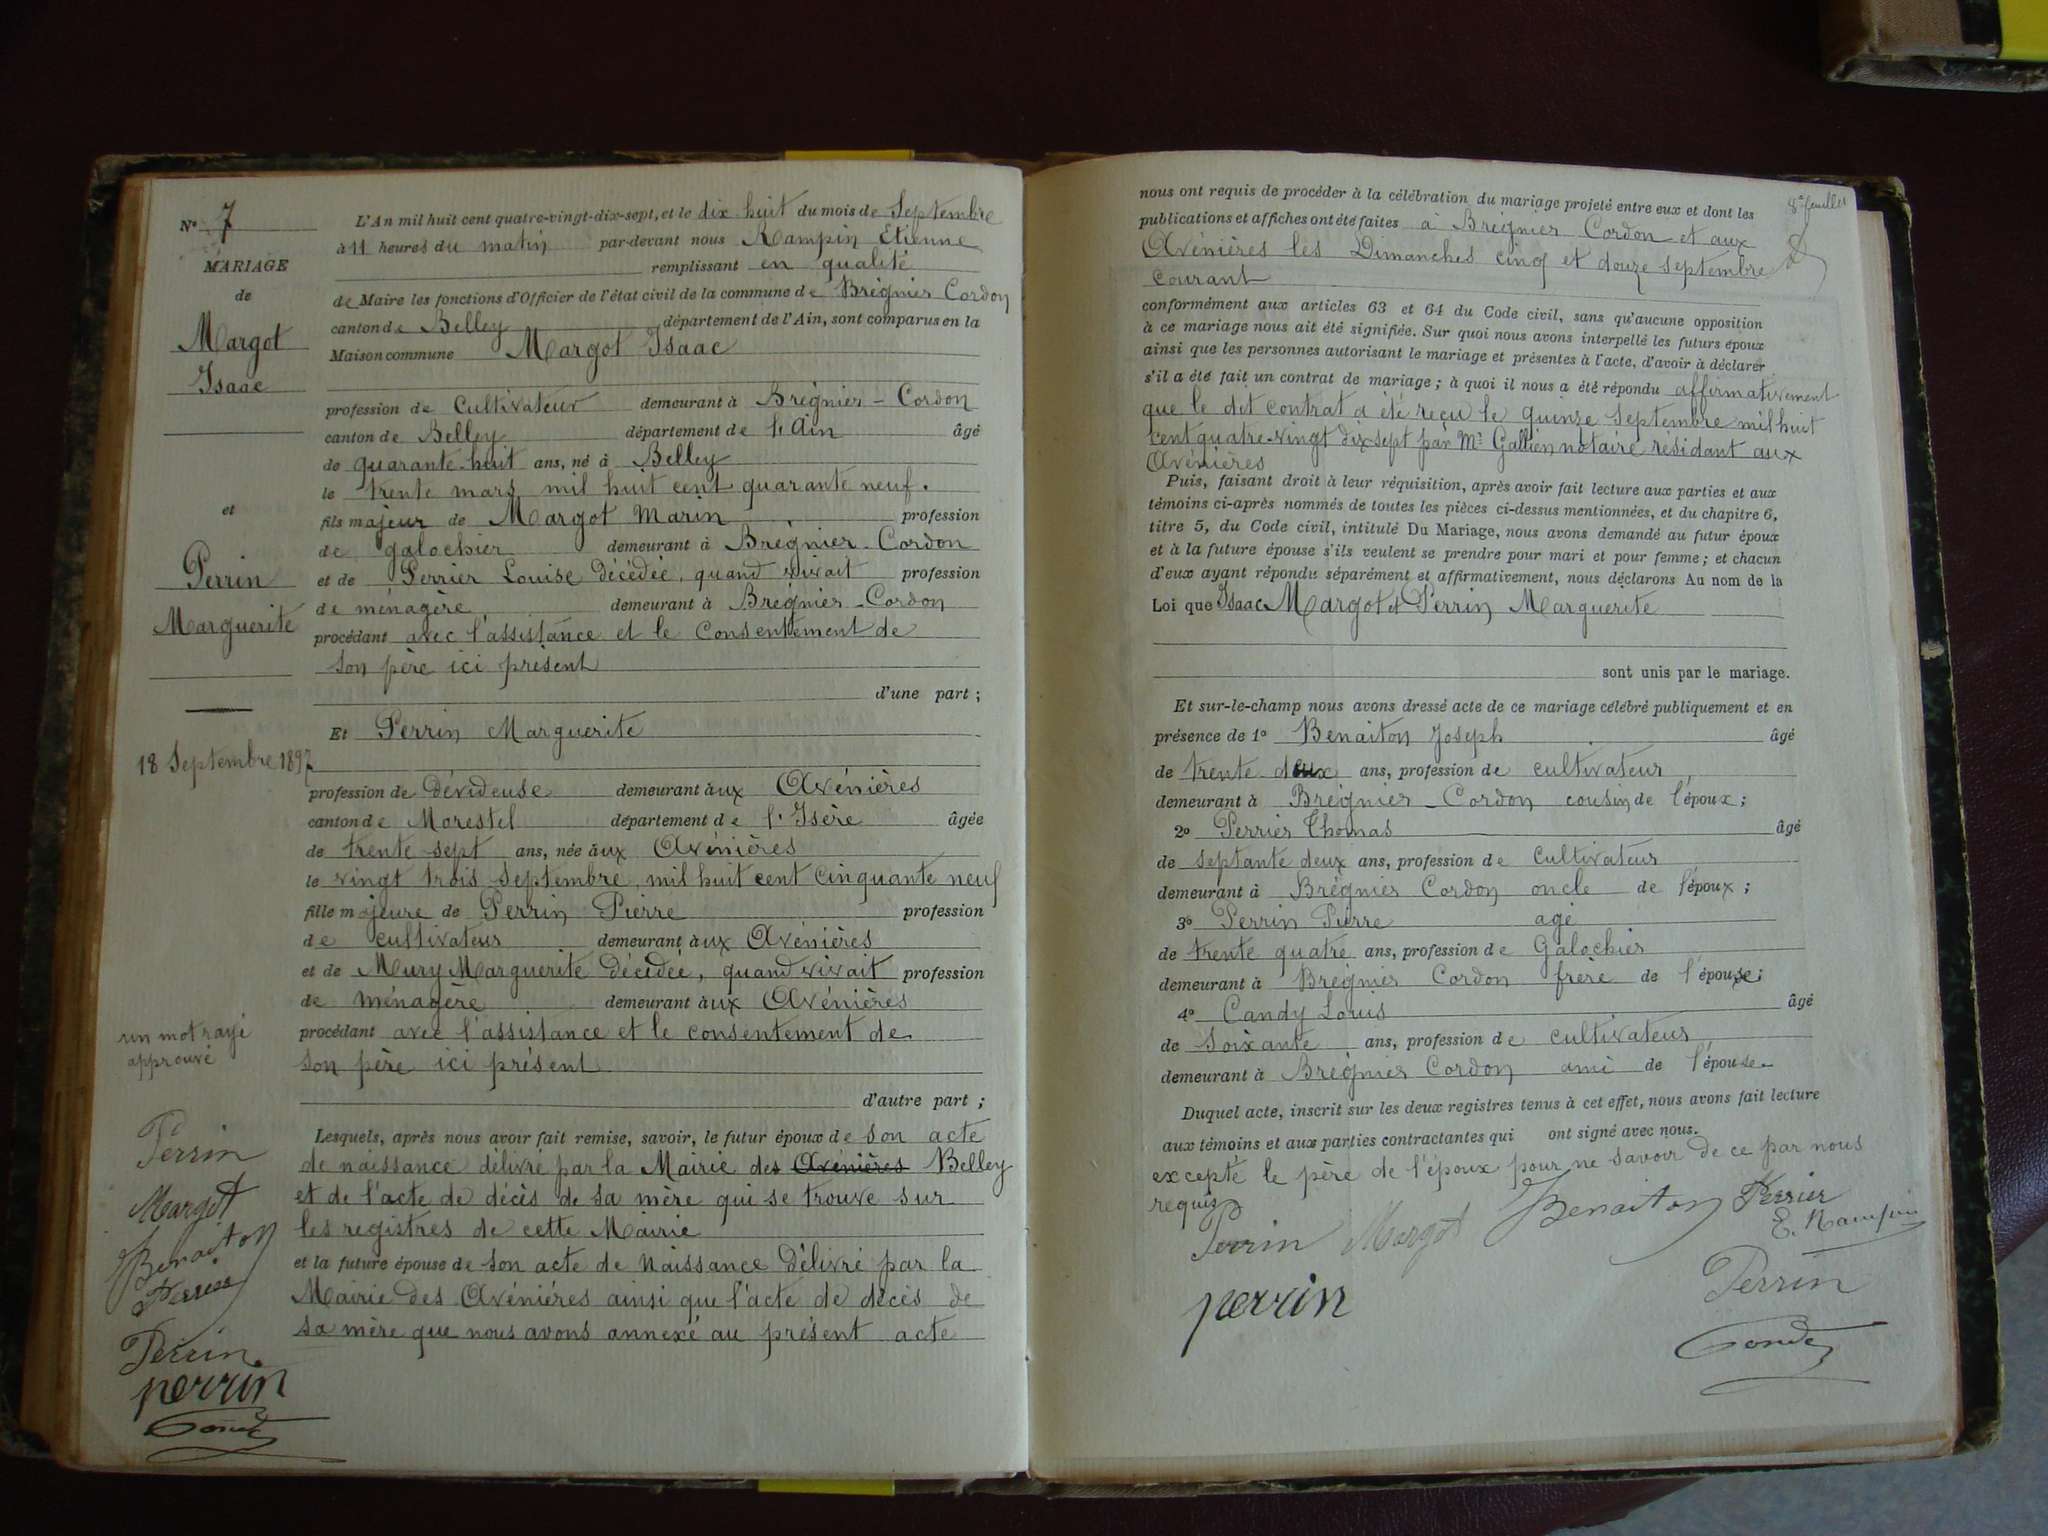 N° 7
MARIAGE
de
Margot
Isaac
et
Perrin
Marguerite
18 Septembre 1897
un mot rayé
approuvé
Perrin
Margot
Benaiton
Perrier
Perrin
perrin
L'An mil huit cent quatre-vingt-dix-sept, et le dix huit du mois de Septembre
à 11 heures du matin par-devant nous Rampin Etienne
remplissant en qualité
de Maire les fonctions d'Officier de l'état civil de la commune de Brégnier Cordon
canton de Belley département de l'Ain, sont comparus en la
Maison commune Margot Isaac
profession de Cultivateur demeurant à Brégnier - Cordon
canton de Belley département de l'Ain âgé
de quarante-huit ans, né à Belley
le trente mars mil huit cent quarante neuf.
fils majeur de Margot Marin profession
de galochier demeurant à Brégnier-Cordon
et de Perrier Louise décédée, quand vivait profession
de ménagère, demeurant à Bregnier-Cordon
procédant avec l'assistance et le Consentement de
son père ici présent
d'une part ;
Et Perrin Marguerite
profession de dévideuse demeurant àux Avénières
canton de Morestel département de l'Isère âgée
de trente sept ans, née àux Avénières
le vingt trois Septembre, mil huit cent cinquante neuf
fille majeure de Perrin Pierre profession
de cultivateur demeurant àux Avénières
et de Mury Marguerite décédée, quand vivait profession
de ménagère demeurant àux Avénières
procédant avec l'assistance et le consentement de
son père ici présent
d'autre part ;
Lesquels, après nous avoir fait remise, savoir, le futur époux de son acte
de naissance délivré par la Mairie des Avénières Belley
et de l'acte de décès de sa mère qui se trouve sur
les registres de cette Mairie
et la future épouse de son acte de Naissance délivré par la
Mairie des Avénières ainsi que l'acte de décès de
sa mère que nous avons annexé au présent acte
8e feuillet
nous ont requis de procéder à la célébration du mariage projeté entre eux et dont les
publications et affiches ont été faites à Brégnier Cordon et aux
Avénières les Dimanches cinq et douze septembre
courant
conformément aux articles 63 et 64 du Code civil, sans qu'aucune opposition
à ce mariage nous ait été signifiée. Sur quoi nous avons interpellé les futurs époux
ainsi que les personnes autorisant le mariage et présentes à l'acte, d'avoir à déclarer
s'il a été fait un contrat de mariage ; à quoi il nous a été répondu affirmativement
que le dit contrat a été reçu le quinze septembre mil huit
cent quatre-vingt dix sept par Me Gallien notaire résidant aux
Avénières
Puis, faisant droit à leur réquisition, après avoir fait lecture aux parties et aux
témoins ci-après nommés de toutes les pièces ci-dessus mentionnées, et du chapitre 6,
titre 5, du Code civil, intitulé Du Mariage, nous avons demandé au futur époux
et à la future épouse s'ils veulent se prendre pour mari et pour femme ; et chacun
d'eux ayant répondu séparément et affirmativement, nous déclarons Au nom de la
Loi que Isaac Margot et Perrin Marguerite
sont unis par le mariage.
Et sur-le-champ nous avons dressé acte de ce mariage célébré publiquement et en
présence de 1° Benaiton Joseph âgé
de trente deux ans, profession de cultivateur
demeurant à Brégnier-Cordon cousin de l'époux ;
2° Perrier Thomas âgé
de septante deux ans, profession de cultivateur
demeurant à Brégnier Cordon oncle de l'époux ;
3° Perrin Pierre agé
de trente quatre ans, profession de Galochier
demeurant à Brégnier Cordon frère de l'épouse ;
4° Candy Louis âgé
de Soixante ans, profession de cultivateur
demeurant à Brégnier Cordon ami de l'épouse.
Duquel acte, inscrit sur les deux registres tenus à cet effet, nous avons fait lecture
aux témoins et aux parties contractantes qui ont signé avec nous.
excepté le père de l'époux pour ne savoir de ce par nous
requis
Perrin Margot Benaiton Perrier
E. Rampin
perrin Perrin